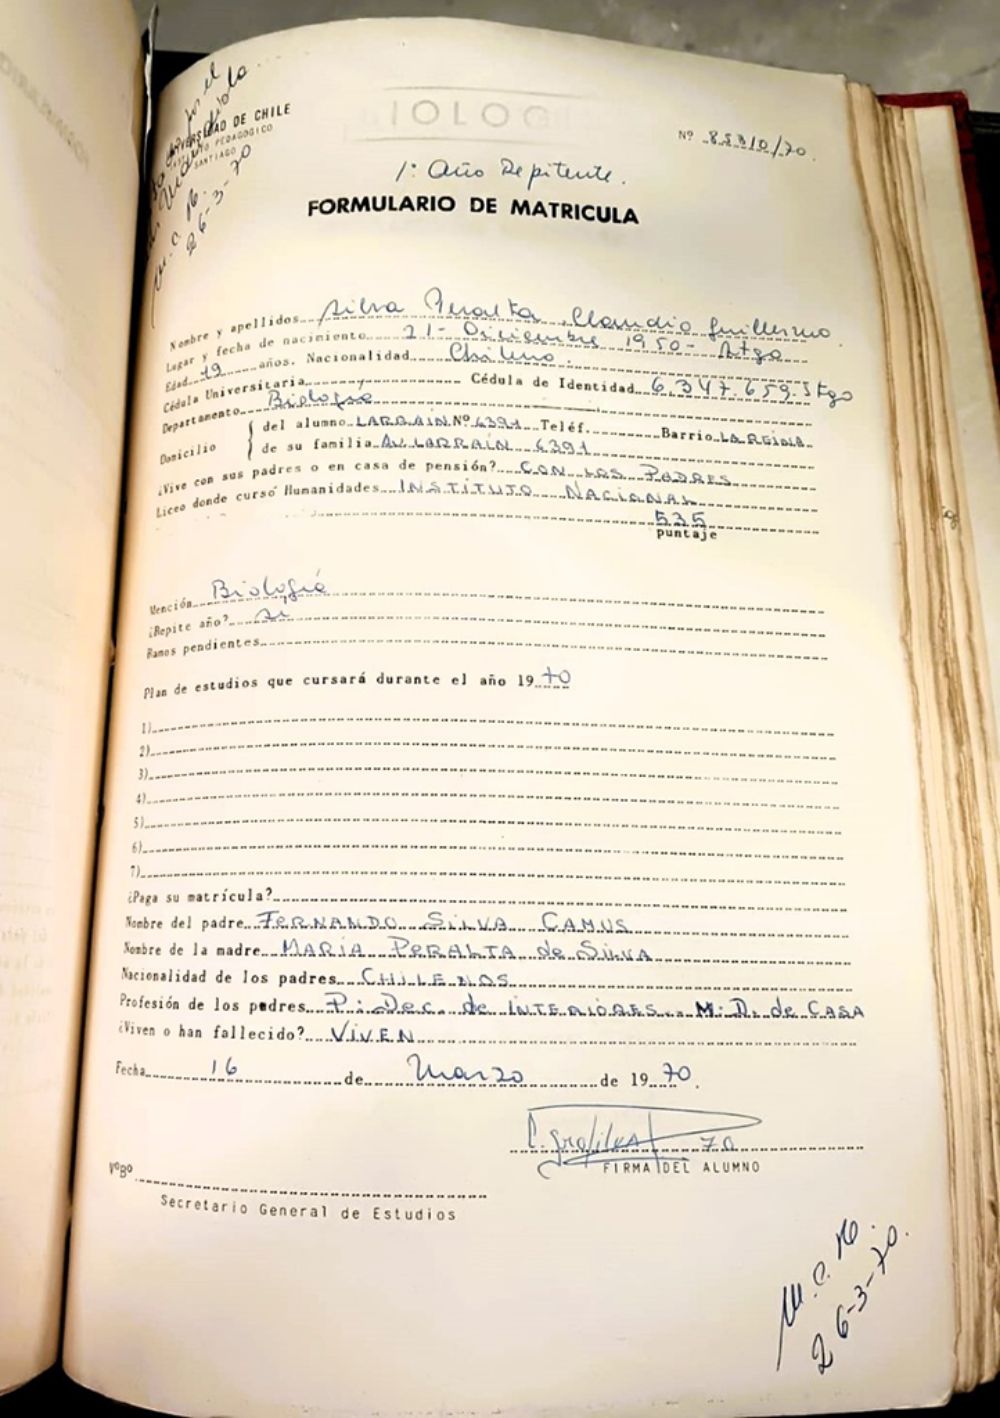 UNIVERSIDAD DE CHILE
INSTITUTO PEDAGOGICO
SANTIAGO
M. C. M.
26-3-70
BIOLOGI
Nº 85310/70
1º Año Repitente.
FORMULARIO DE MATRICULA
Nombre y apellidos Silva Peralta Claudio Guillermo
Lugar y fecha de nacimiento 21- Diciembre 1950- Stgo
Edad 19 años. Nacionalidad Chileno.
Cédula Universitaria Cédula de Identidad 6.347.659. Stgo
Departamento Biología
Domicilio
del alumno LARRAIN Nº 6391 Teléf. Barrio LA REINA
de su familia AV. LARRAIN 6391
¿Vive con sus padres o en casa de pensión? CON LOS PADRES
Liceo donde cursó Humanidades INSTITUTO NACIONAL
535
puntaje
Mención Biología
¿Repite año? Si
Ramos pendientes
Plan de estudios que cursará durante el año 19 70
1)
2)
3)
4)
5)
6)
7)
¿Paga su matrícula?
Nombre del padre FERNANDO SILVA CAMUS
Nombre de la madre MARIA PERALTA de SILVA
Nacionalidad de los padres CHILENOS
Profesión de los padres P: Dec. de INTERIORES. M: D. de CASA
¿Viven o han fallecido? VIVEN
Fecha 16 de Marzo de 19 70.
70
FIRMA DEL ALUMNO
VºBº
Secretario General de Estudios
M. C. M.
26-3-70.